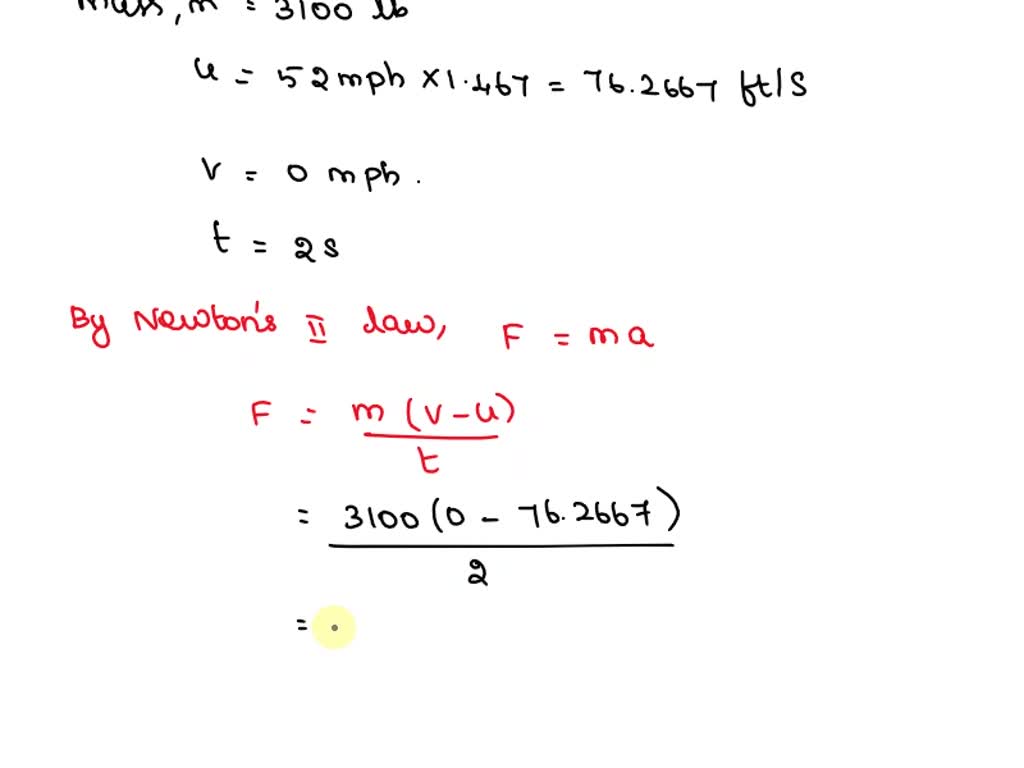 mass, m = 3100 lb
u = 52 mph × 1.467 = 76.2667 ft/s
v = 0 mph.
t = 2s
By Newton's II law, F = ma
F = m (v - u)
t
= 3100 (0 - 76.2667)
2
=